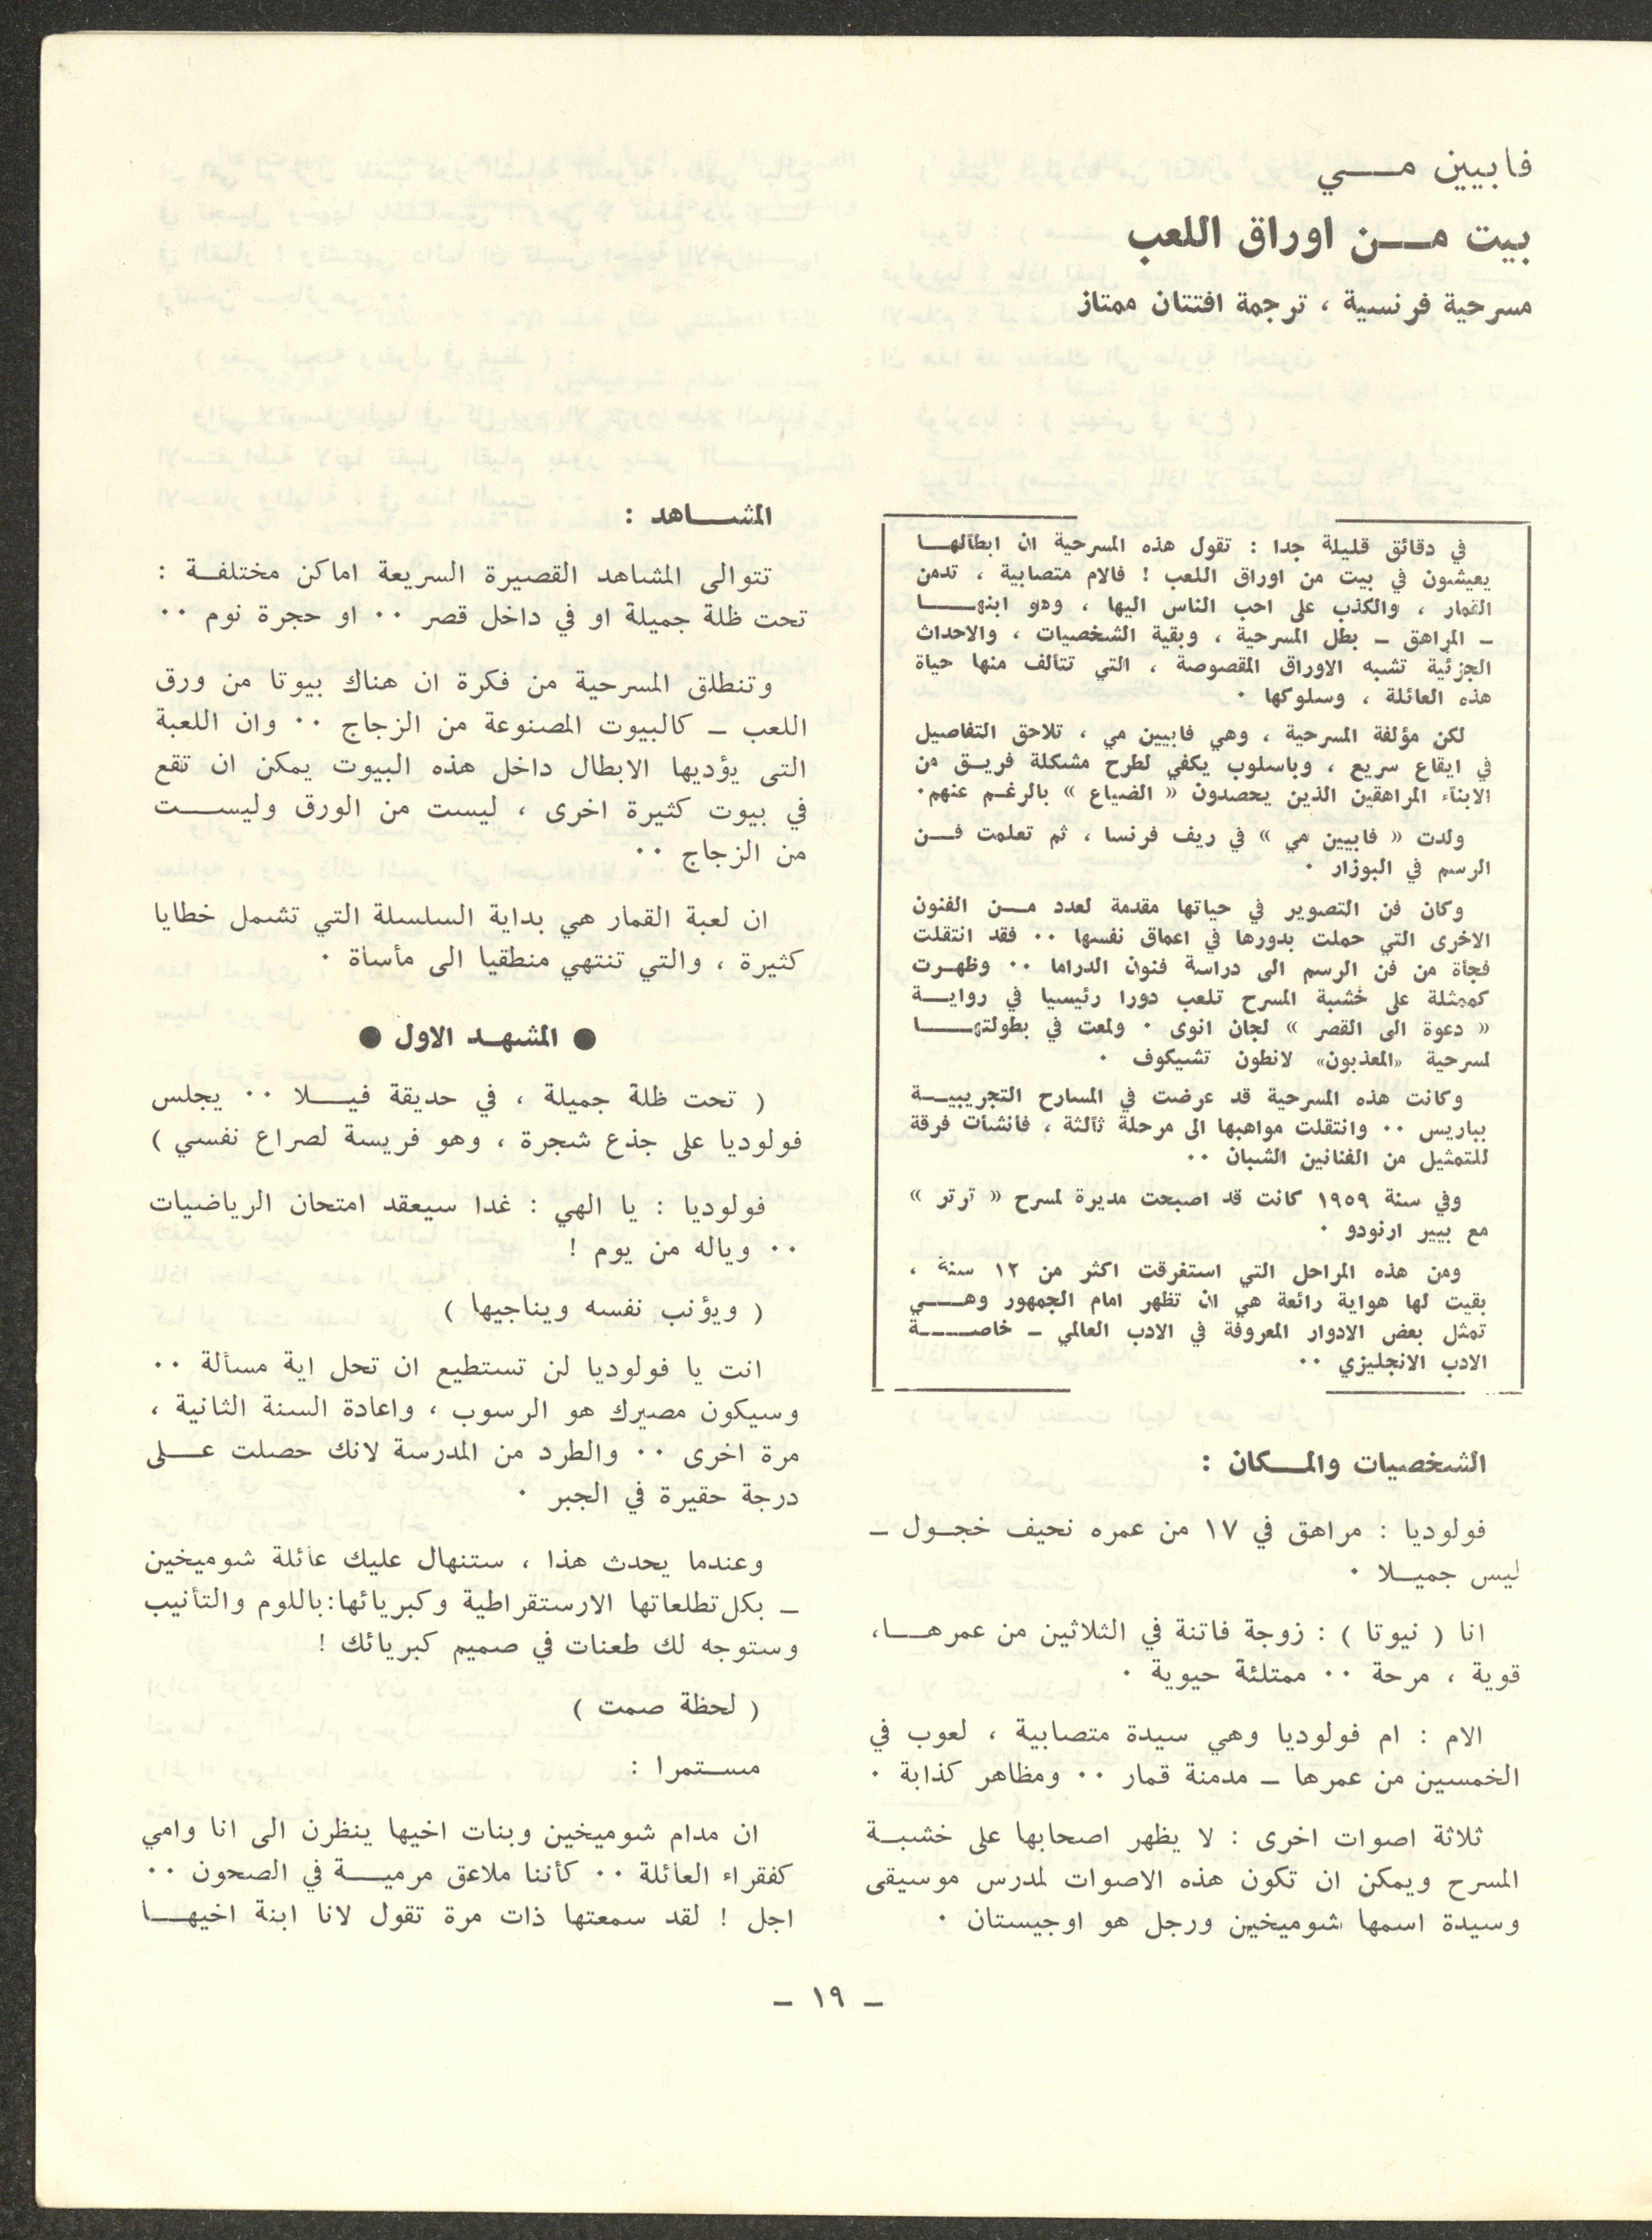 فابيين مي
بيت من اوراق اللعب
مسرحية فرنسية ، ترجمة افتتان ممتاز
في دقائق قليلة جدا : تقول هذه المسرحية ان ابطالها
يعيشون في بيت من اوراق اللعب ! فالام متصابية ، تدمن
القمار ، والكذب على احب الناس اليها ، وهو ابنها
– المراهق – بطل المسرحية ، وبقية الشخصيات ، والاحداث
الجزئية تشبه الاوراق المقصوصة ، التي تتألف منها حياة
هذه العائلة ، وسلوكها .
لكن مؤلفة المسرحية ، وهي فابيين مي ، تلاحق التفاصيل
في ايقاع سريع ، وباسلوب يكفي لطرح مشكلة فريق من
الابناء المراهقين الذين يحصدون « الضياع » بالرغم عنهم.
ولدت « فابيين مي » في ريف فرنسا ، ثم تعلمت فن
الرسم في البوزار .
وكان فن التصوير في حياتها مقدمة لعدد من الفنون
الاخرى التي حملت بدورها في اعماق نفسها .. فقد انتقلت
فجأة من فن الرسم الى دراسة فنون الدراما .. وظهرت
كممثلة على خشبة المسرح تلعب دورا رئيسيا في رواية
« دعوة الى القصر » لجان انوى . ولمعت في بطولتها
لمسرحية «المعذبون» لانطون تشيكوف .
وكانت هذه المسرحية قد عرضت في المسارح التجريبية
بباريس .. وانتقلت مواهبها الى مرحلة ثالثة ، فأنشأت فرقة
للتمثيل من الفنانين الشبان ..
وفي سنة ١٩٥٩ كانت قد اصبحت مديرة لمسرح « ترتر »
مع بيير ارنودو .
ومن هذه المراحل التي استغرقت اكثر من ١٢ سنة ،
بقيت لها هواية رائعة هي ان تظهر امام الجمهور وهي
تمثل بعض الادوار المعروفة في الادب العالمي – خاصة
الادب الانجليزي ..
الشخصيات والمكان :
فولوديا : مراهق في ١٧ من عمره نحيف خجول –
ليس جميلا .
انا ( نيوتا ) : زوجة فاتنة في الثلاثين من عمرها،
قوية ، مرحة .. ممتلئة حيوية .
الام : ام فولوديا وهي سيدة متصابية ، لعوب في
الخمسين من عمرها – مدمنة قمار .. ومظاهر كذابة .
ثلاثة اصوات اخرى : لا يظهر اصحابها على خشبة
المسرح ويمكن ان تكون هذه الاصوات لمدرس موسيقى
وسيدة اسمها شوميخين ورجل هو اوجيستان .
المشاهد :
تتوالى المشاهد القصيرة السريعة اماكن مختلفة :
تحت ظلة جميلة او في داخل قصر .. او حجرة نوم ..
وتنطلق المسرحية من فكرة ان هناك بيوتا من ورق
اللعب – كالبيوت المصنوعة من الزجاج .. وان اللعبة
التى يؤديها الابطال داخل هذه البيوت يمكن ان تقع
في بيوت كثيرة اخرى ، ليست من الورق وليست
من الزجاج ..
ان لعبة القمار هي بداية السلسلة التي تشمل خطايا
كثيرة ، والتي تنتهي منطقيا الى مأساة .
● المشهد الاول ●
( تحت ظلة جميلة ، في حديقة فيلا .. يجلس
فولوديا على جذع شجرة ، وهو فريسة لصراع نفسي )
فولوديا : يا الهي : غدا سيعقد امتحان الرياضيات
.. وياله من يوم !
( ويؤنب نفسه ويناجيها )
انت يا فولوديا لن تستطيع ان تحل اية مسألة ..
وسيكون مصيرك هو الرسوب ، واعادة السنة الثانية ،
مرة اخرى .. والطرد من المدرسة لانك حصلت على
درجة حقيرة في الجبر .
وعندما يحدث هذا ، ستنهال عليك عائلة شوميخين
– بكل تطلعاتها الارستقراطية وكبريائها:باللوم والتأنيب
وستوجه لك طعنات في صميم كبريائك !
( لحظة صمت )
مستمرا :
ان مدام شوميخين وبنات اخيها ينظرن الى انا وامي
كفقراء العائلة .. كأننا ملاعق مرمية في الصحون ..
اجل ! لقد سمعتها ذات مرة تقول لانا ابنة اخيها
– ١٩ –